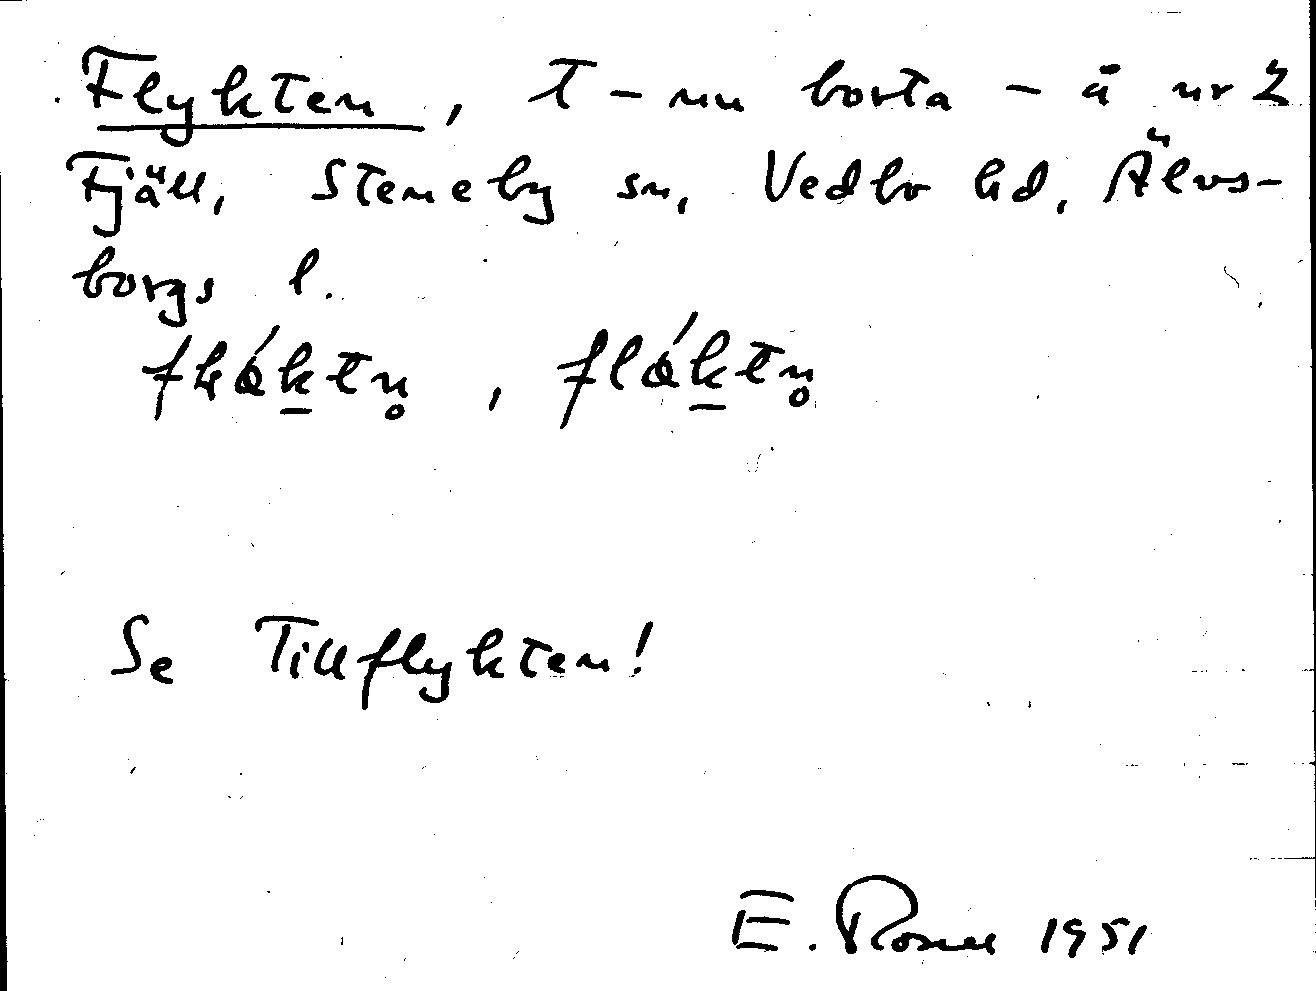 Flykten, T - nu borta - å nr 2
Fjäll, Steneby sn, Vedbo hd, Älvs-
borgs l.
flǿktn̥, flǿktn̥
Se Tillflykten!
E. 1951